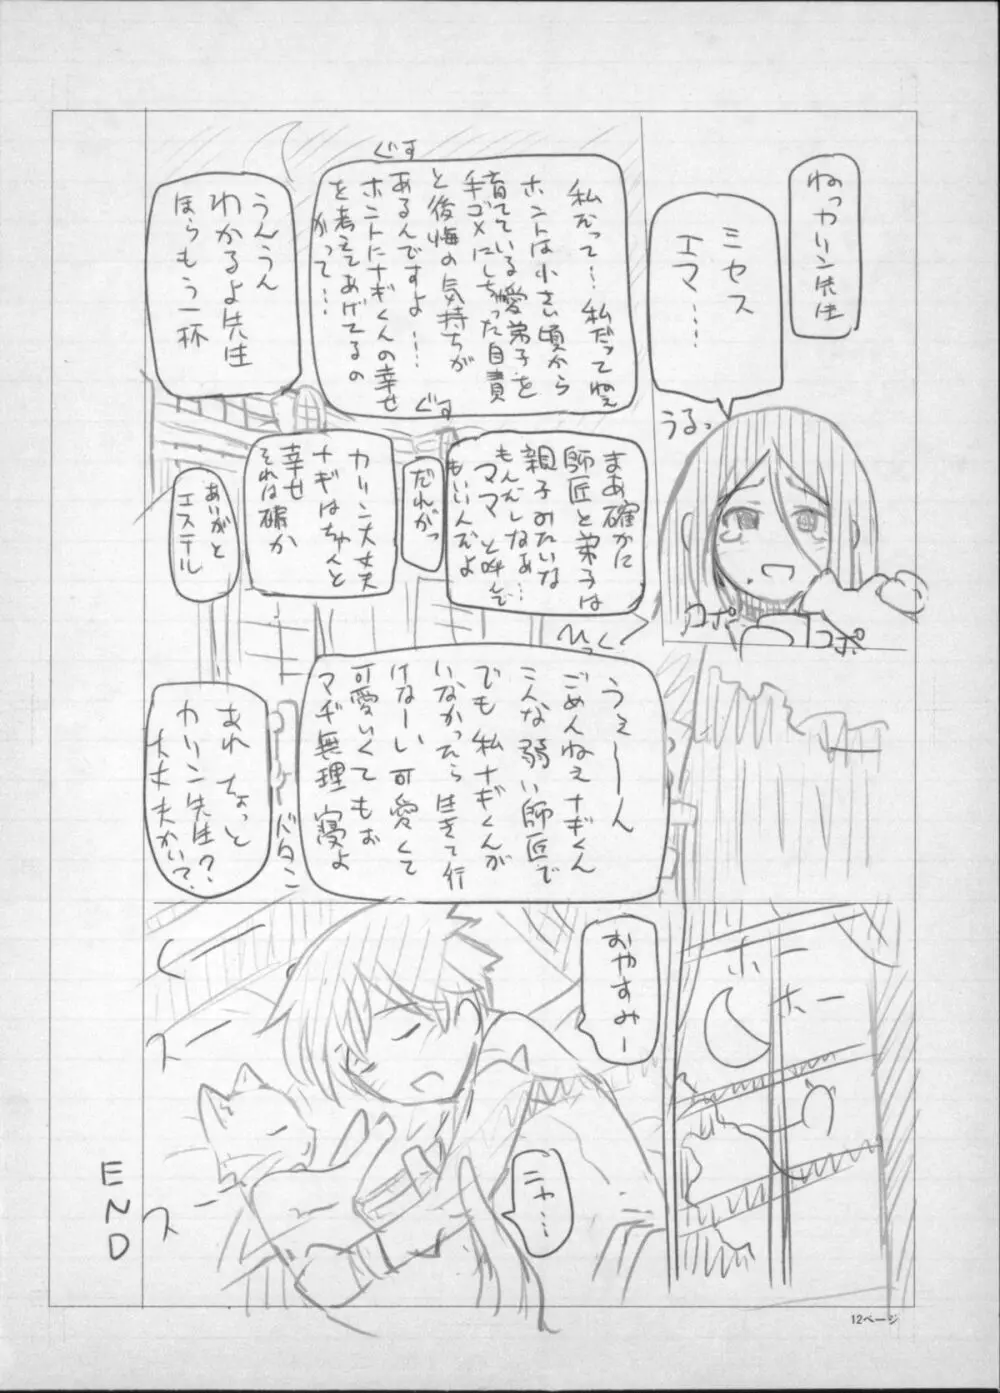 ねっカリン先生
ミセス
エマ…
うるっ
コポ
コポ
私だって…私だってねぇ
ホントは小さい頃から
育てている愛弟子を
手ゴメにしちゃった自責
と後悔の気持ちが
あるんですよ……
ホントにナギくんの幸せ
を考えてあげてるの
かって…
ぐす
ぐす
うんうん
わかるよ先生
ほらもう一杯
まあ確かに
師匠と弟子は
親子みたいな
もんだしなぁ…
ママ と呼んで
もいいんだよ
だれがっ
カリン大丈夫
ナギはちゃんと
幸せ
それは確か
あいがと
エステル
ひっく
うえーーん
ごめんねぇナギくん
こんな弱い師匠で
でも私ナギくんが
いなかったら生きて行
けなーい可愛くて
可愛いくてもお
マヂ無理 寝よ
ドタン
あれ ちょっと
カリン先生?
大丈夫かい?
ホー
ホー
おやすみー
ニャ…
スー
スー
END
12ページ